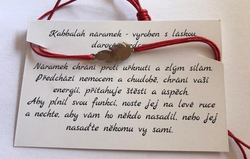 Kabbalah náramek - vyroben s láskou,
Náramek chrání proti uřknutí a zlým silám.
Předchází nemocem a chudobě, chrání vaší
energii, přitahuje štěstí a úspěch.
Aby plnil svou funkci, noste jej na levé ruce
a nechte, aby vám ho někdo nasadil, nebo jej
nasaďte někomu vy sami.